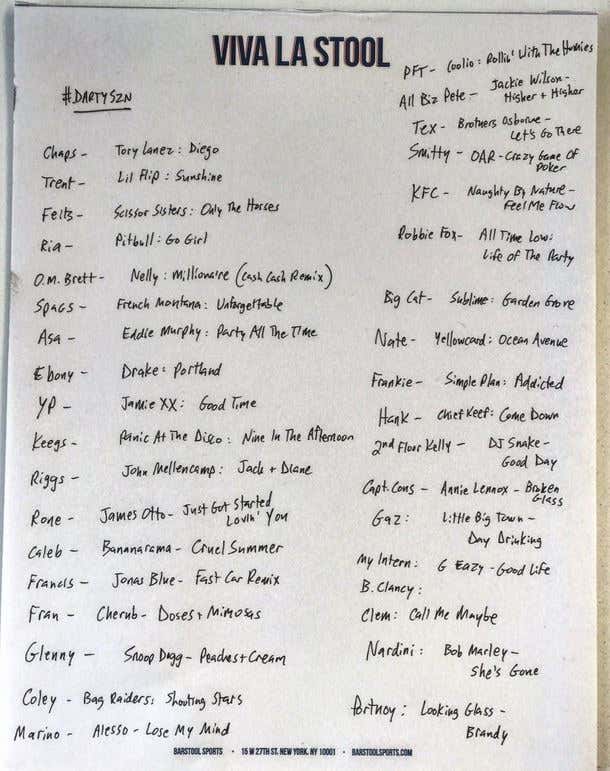 VIVA LA STOOL
#DARTYSZN
Chaps - Tory Lanez : Diego
Trent - Lil Flip : Sunshine
Feits - Scissor Sisters : Only The Horses
Ria - Pitbull : Go Girl
O.M. Brett - Nelly : Millionaire (Cash Cash Remix)
Spags - French Montana : Unforgettable
Asa - Eddie Murphy : Party All The Time
Ebony - Drake : Portland
YP - Jamie XX : Good Time
Keegs - Panic At The Disco : Nine In The Afternoon
Riggs - John Mellencamp : Jack + Diane
Rone - James Otto - Just Got Started
Lovin' You
Caleb - Bananarama - Cruel Summer
Francis - Jonas Blue - Fast Car Remix
Fran - Cherub - Doses + Mimosas
Glenny - Snoop Dogg - Peaches + Cream
Coley - Bag Raiders : Shooting Stars
Marino - Alesso - Lose My Mind
PFT - Coolio : Rollin' With The Homies
All Biz Pete - Jackie Wilson -
Higher + Higher
Tex - Brothers Osborne -
Let's Go There
Smitty - OAR - Crazy Game Of
Poker
KFC - Naughty By Nature -
Feel Me Flow
Robbie Fox - All Time Low :
Life Of The Party
Big Cat - Sublime : Garden Grove
Nate - Yellowcard : Ocean Avenue
Frankie - Simple Plan : Addicted
Hank - Chief Keef : Come Down
2nd Floor Kelly - DJ Snake -
Good Day
Capt. Cons - Annie Lennox - Broken
Glass
Gaz : Little Big Town -
Day Drinking
My Intern : G Eazy - Good Life
B. Clancy :
Clem : Call Me Maybe
Nardini : Bob Marley -
She's Gone
Portnoy : Looking Glass -
Brandy
BARSTOOL SPORTS · 15 W 27TH ST. NEW YORK, NY 10001 · BARSTOOLSPORTS.COM